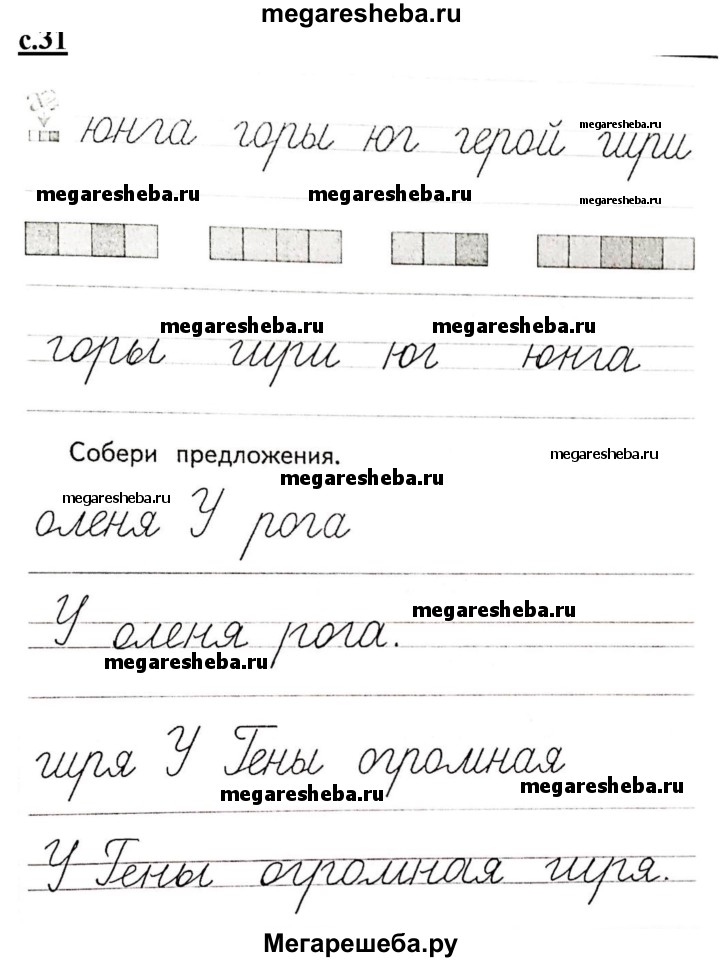 megaresheba.ru
с.31
megaresheba.ru
юнга горы юг герой гири
megaresheba.ru megaresheba.ru megaresheba.ru
megaresheba.ru megaresheba.ru
горы гири юг юнга
Собери предложения. megaresheba.ru
megaresheba.ru
megaresheba.ru
оленя У рога
megaresheba.ru
У оленя рога.
megaresheba.ru
гиря У Гены огромная
megaresheba.ru megaresheba.ru
У Гены огромная гиря.
Мегарешеба.ру